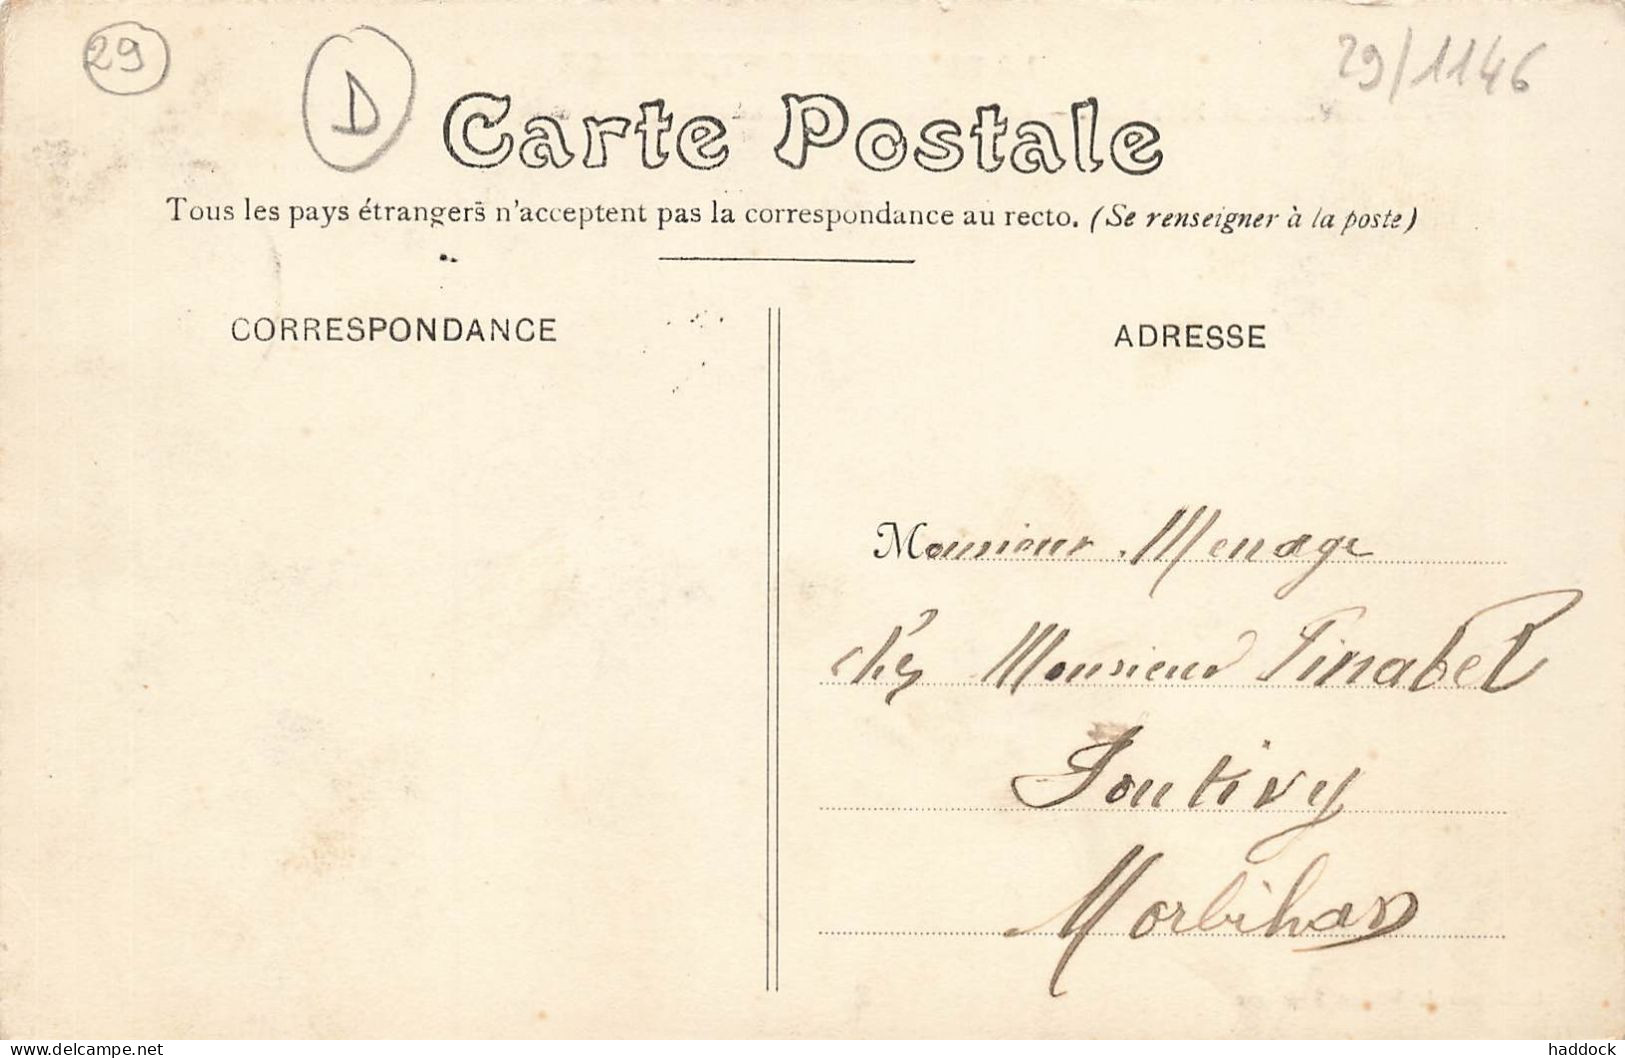 29
D
29/1146
Carte Postale
Tous les pays étrangers n'acceptent pas la correspondance au recto. (Se renseigner à la poste)
CORRESPONDANCE
ADRESSE
Monsieur Menage
chez Monsieur Pinabel
Pontivy
Morbihan
delcampe.net
haddock